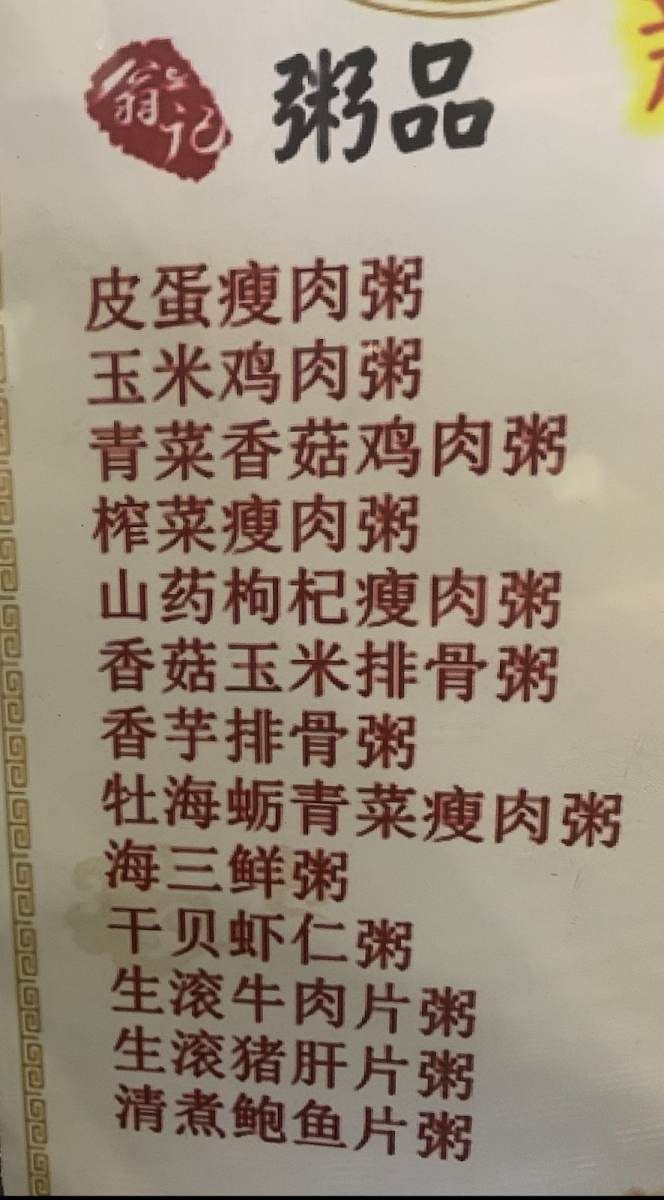 翁记 粥品
皮蛋瘦肉粥
玉米鸡肉粥
青菜香菇鸡肉粥
榨菜瘦肉粥
山药枸杞瘦肉粥
香菇玉米排骨粥
香芋排骨粥
牡海蛎青菜瘦肉粥
海三鲜粥
干贝虾仁粥
生滚牛肉片粥
生滚猪肝片粥
清煮鲍鱼片粥